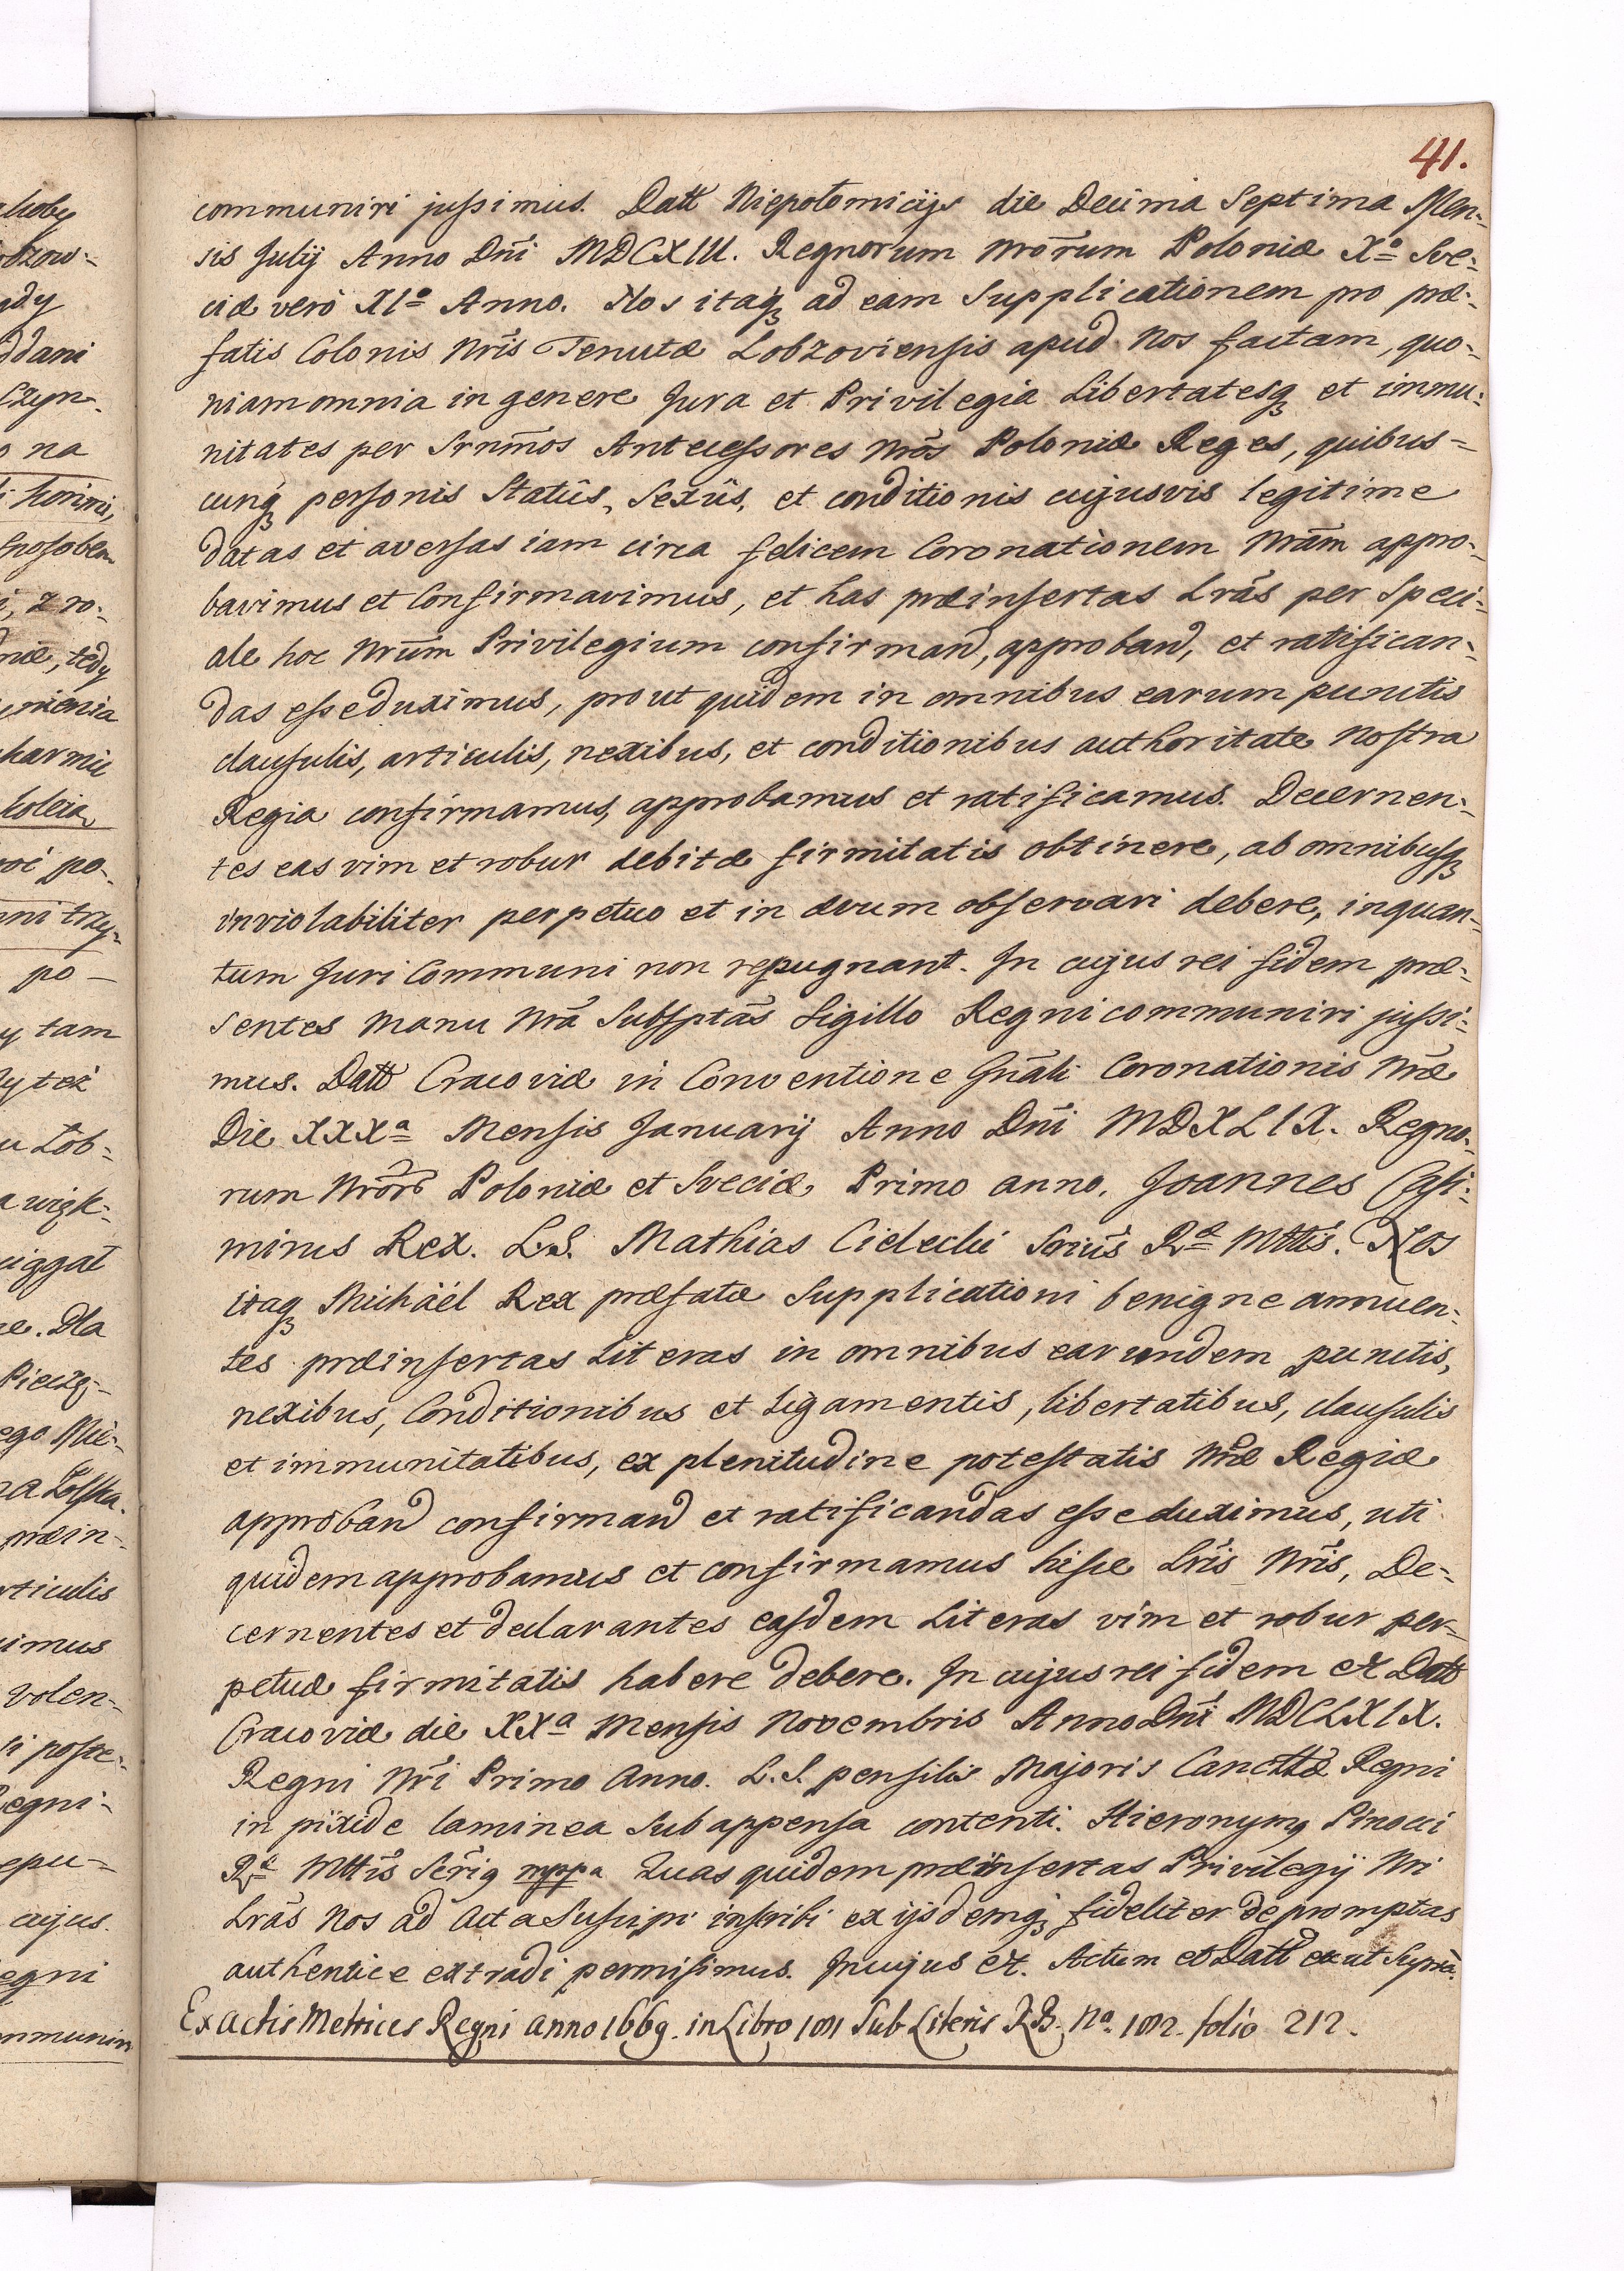 41.
communiri jussimus. Datt Niepołomicijs die Decima Septima Men=
sis Julij Anno Dñi MDCXLII. Regnorum Nrõrum Poloniæ Xº Sve=
ciæ verò XIº Anno. Nos itaqꝫ ad eam Supplicationem pro præ=
fatis Colonis Nrĩs Tenutæ Lobzoviensis apud Nos factam, quo=
niam omnia in genere Jura et Privilegia Libertatesqꝫ et immu=
nitates per Srnm̃os Antecessores Nrõs Poloniæ Reges, quibus=
cunqꝫ personis Statûs, Sexûs, et conditionis cujusvis legitime
datas et aversas iam circa felicem Coronationem Nrãm appro=
bavimus et Confirmavimus, et has præinsertas Lrãs per Speci=
ale hoc Nrũm Privilegium confirmand, approband, et ratifican=
das esse duximus, prout quidem in omnibus earum punctis
clausulis, articulis, nexibus, et conditionibus authoritate Nostra
Regia confirmamus, approbamus et ratificamus. Decernen=
tes eas vim et robur debitæ firmitatis obtinere, ab omnibusqꝫ
inviolabiliter perpetuo et in ævum observari debere, inquan=
tum Juri Communi non repugnant. In cujus rei fidem præ=
sentes Manu Nrã Subsptãs Sigillo Regni communiri jussi=
mus. Datt Cracoviæ in Conventione Gñali Coronationis Nræ
Die XXXª Mensis Januarij Anno Dñi MDXLIX. Regno=
rum Nrõr Poloniæ et Sveciæ Primo anno. Joannes Casi=
mirus Rex. L.S. Mathias Cielecki Srius Rª Mttis. Nos
itaqꝫ Michäel Rex præfatæ Supplicationi benigne annuen=
tes præinsertas Literas in omnibus earundem punctis,
nexibus, Conditionibus et Ligamentis, libertatibus, clausulis
et immunitatibus, ex plenitudine potestatis Nræ Regiæ
approband confirmand et ratificandas esse duximus, uti
quidem approbamus et confirmamus hisce Lrĩs Nrĩs, De=
cernentes et declarantes easdem Literas vim et robur per=
petuæ firmitatis habere debere. In cujus rei fidem et Datt
Cracoviæ die XXª Mensis Novembris Anno Dñi MDCLXIX.
Regni Nrĩ Primo Anno. L.S. pensilis Majoris Cancttæ Regni
in pixide laminea Subappensa contenti. Hieronymꝰ Pinocci
Rª Mttis Serĩꝰ mppa Quas quidem præinsertas Privilegij Nri
Lrãs Nos ad Acta Suscipi inscribi ex ijsdemqꝫ fideliter depromptas
authentice extradi permisimus. In cujus et. Actum et Datt ut Supra.
Ex Actis Metrices Regni Anno 1669. in Libro Sub Literis RB. Nº. folio 212.